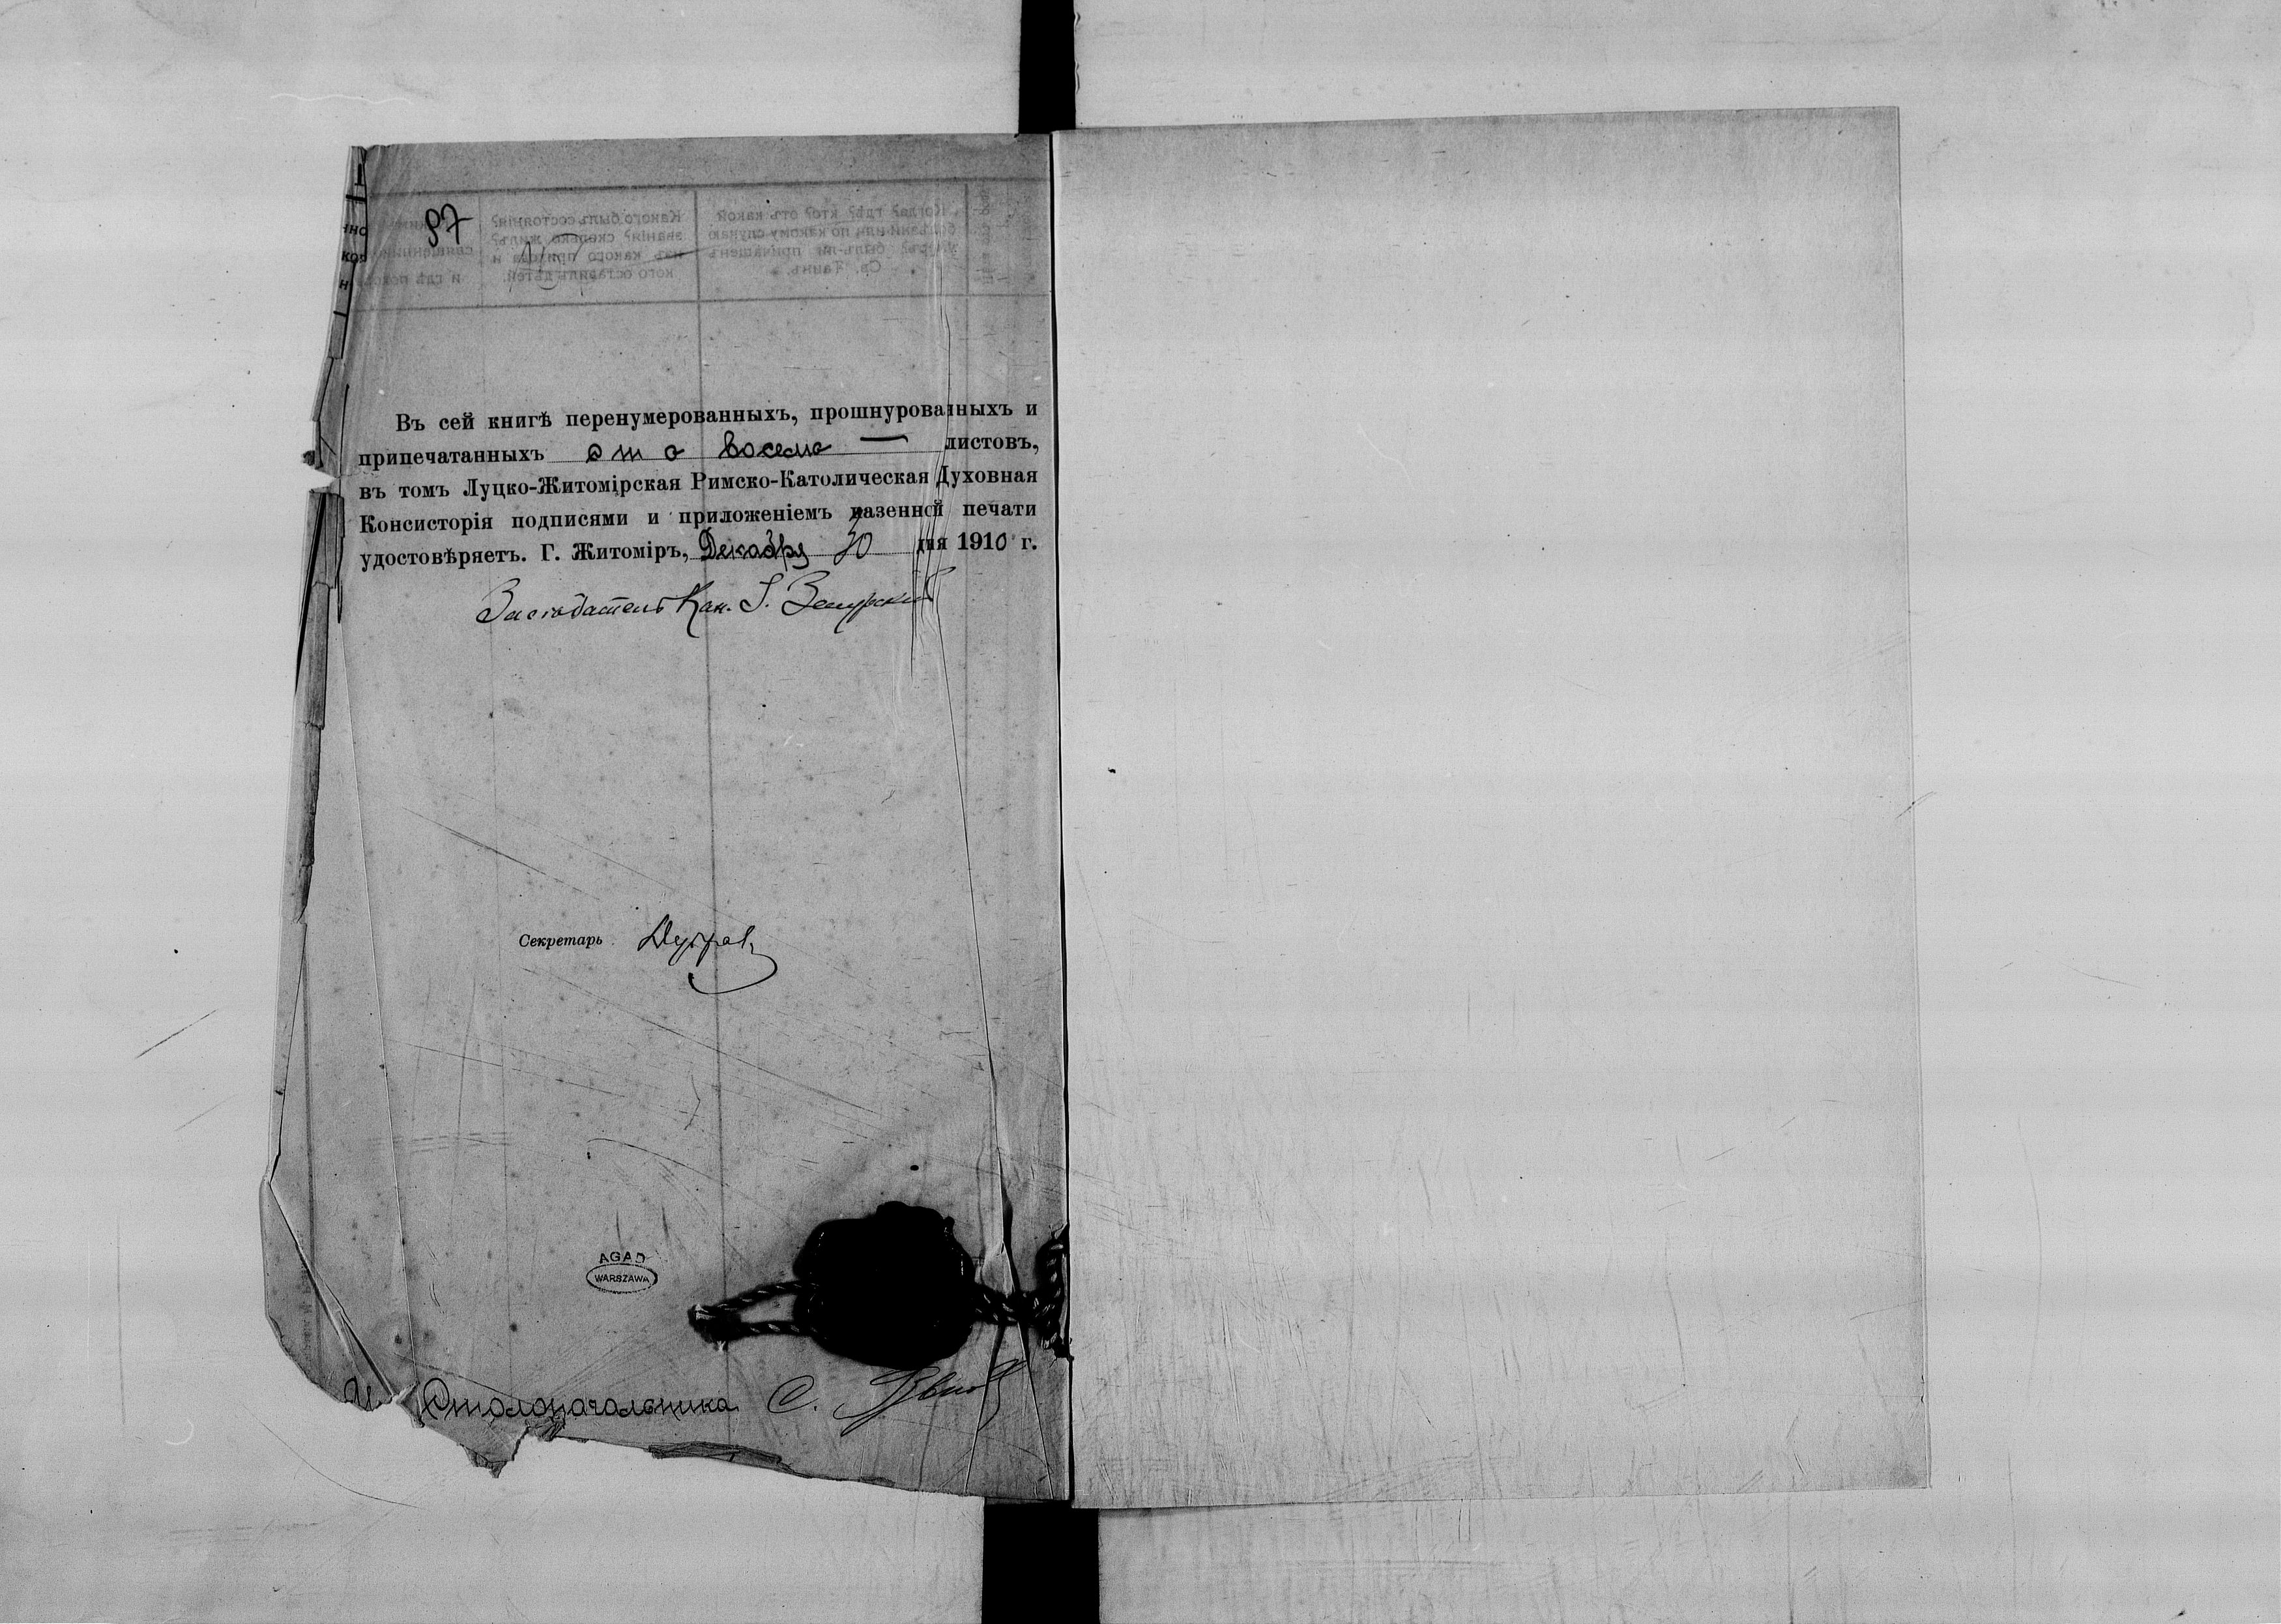 97
Въ сей книгѣ перенумерованныхъ, прошнурованныхъ и
припечатанныхъ сто восемь — листовъ,
въ томъ Луцко-Житомірская Римско-Католическая Духовная
Консисторія подписями и приложеніемъ казенной печати
удостовѣряетъ. Г. Житоміръ, Декабря 30 дня 1910 г.
Засѣдатель Кан. I.
Секретарь
AGAD
WARSZAWA
И Столоначальника С.